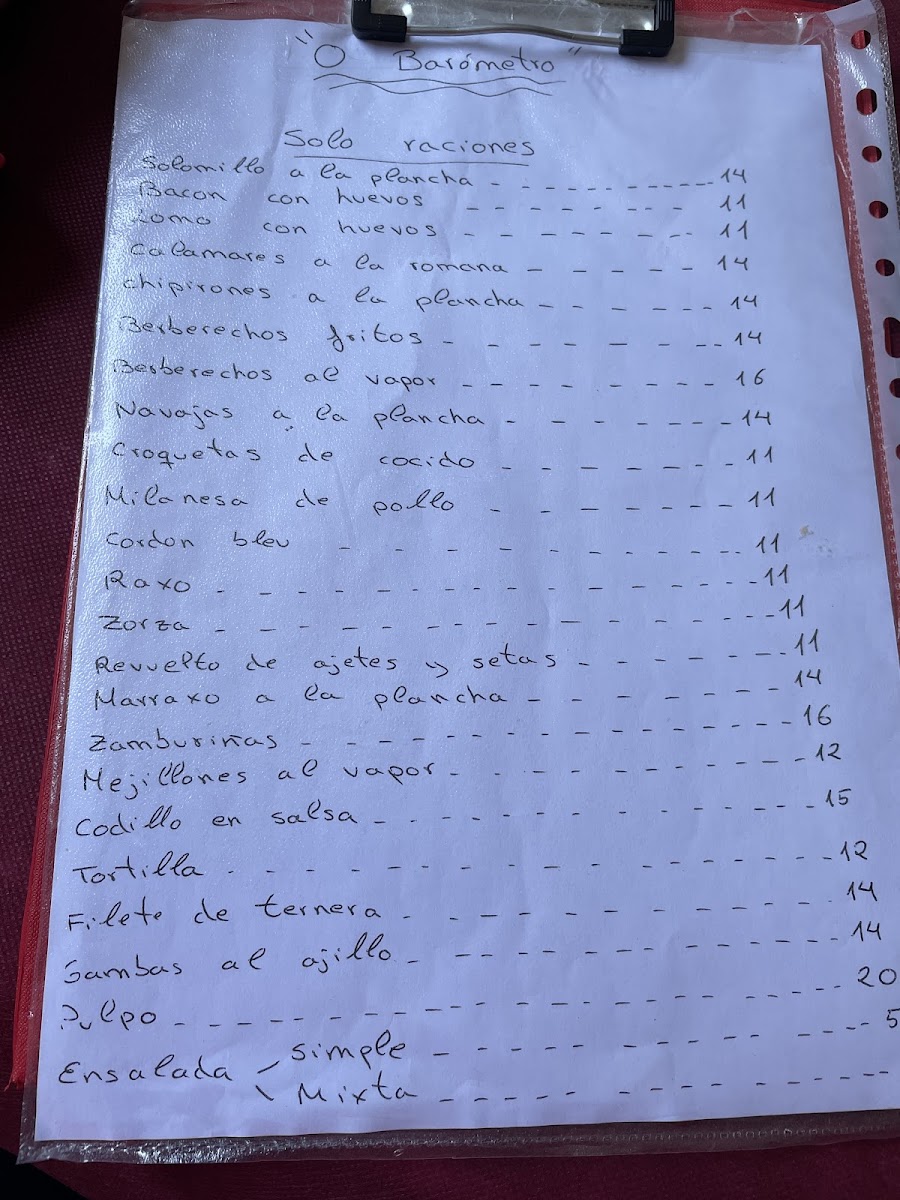 "O Barómetro"
Solo raciones
Solomillo a la plancha - - - - - - - - - - - 14
Bacon con huevos - - - - - - - - 11
Lomo con huevos - - - - - - - 11
Calamares a la romana - - - - - 14
Chipirones a la plancha - - - - - 14
Berberechos fritos - - - - - - - - 14
Berberechos al vapor - - - - - - - - 16
Navajas a la plancha - - - - - - - 14
Croquetas de cocido - - - - - - - 11
Milanesa de pollo - - - - - - - 11
Cordon bleu - - - - - - - - - - - 11
Raxo - - - - - - - - - - - - - - - 11
Zorza - - - - - - - - - - - - - - - 11
Revuelto de ajetes y setas - - - - - - - 11
Marraxo a la plancha - - - - - - - 14
Zamburiñas - - - - - - - - - - - - - - 16
Mejillones al vapor - - - - - - - - - - 12
Codillo en salsa - - - - - - - - - - - - - 15
Tortilla - - - - - - - - - - - - - - - - 12
Filete de ternera - - - - - - - - - - - 14
Gambas al ajillo - - - - - - - - - - - - 14
Pulpo - - - - - - - - - - - - - - - - - - 20
Ensalada < simple - - - - - - - - - - - - 5
Mixta - - - - - - - - - - - - -